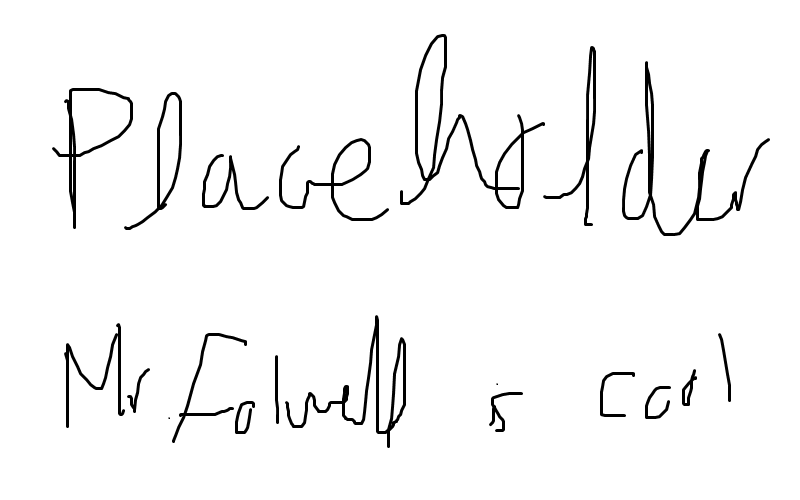 Placeholder
Mr Folwell is cool